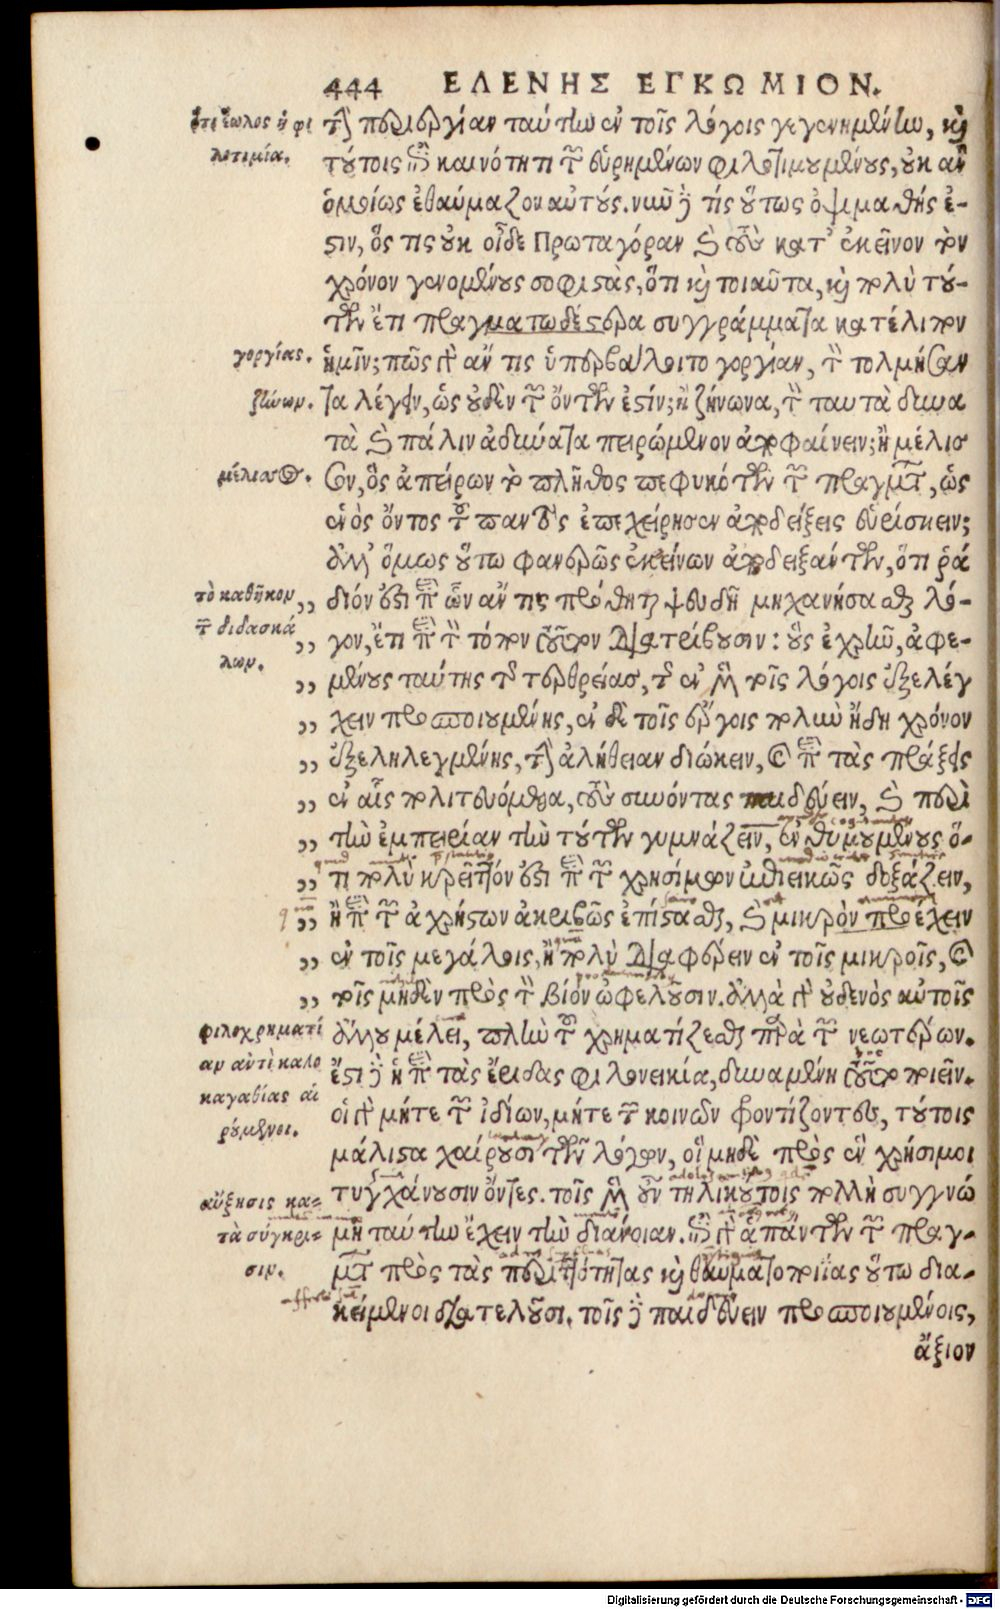 444 ΕΛΕΝΗΣ ΕΓΚΩΜΙΟΝ.
ὅτι ἕωλος ἡ φι
λοτιμία.
τὴν περιεργίαν ταύτην ἐν τοῖς λόγοις γεγενημένην, καὶ
τούτοις ἐπὶ τῇ καινότητι τῶν εὑρημένων φιλοτιμουμένους, οὐκ ἂν
ὁμοίως ἐθαύμαζον αὐτούς. νῦν δὲ τίς οὕτως ὀψιμαθής ἐ-
στιν, ὅς τις οὐκ οἶδε Πρωταγόραν καὶ τοὺς κατ' ἐκεῖνον τὸν
χρόνον γενομένους σοφιστὰς, ὅτι καὶ τοιαῦτα, καὶ πολὺ τού-
των ἔτι πραγματωδέστερα συγγράμματα κατέλιπον
γοργίας.
ἡμῖν; πῶς γὰρ ἄν τις ὑπερβάλοιτο γοργίαν, τὸν τολμήσαν
ζήνων.
τα λέγειν, ὡς οὐδὲν τῶν ὄντων ἐστίν; ἢ ζήνωνα, τὸν ταυτὰ δυνα
τὰ καὶ πάλιν ἀδύνατα πειρώμενον ἀποφαίνειν; ἢ μέλισ
μέλισσος.
σον, ὃς ἀπείρων τὸ πλῆθος πεφυκότων τῶν πραγμάτων, ὡς
ἑνὸς ὄντος τοῦ παντὸς ἐπεχείρησεν ἀποδείξεις εὑρίσκειν;
ἀλλ' ὅμως οὕτω φανερῶς ἐκείνων ἀποδειξάντων, ὅτι ῥᾴ
τὸ καθῆκον
τῶν διδασκά
λων.
,, διόν ἐστι περὶ ὧν ἄν τις πρόθηται ψευδῆ μηχανήσασθαι λό-
,, γον, ἔτι περὶ τὸν τόπον τοῦτον διατρίβουσιν: οὓς ἐχρῆν, ἀφε-
,, μένους ταύτης τῆς τερθρείας, τῆς ἐν μὲν τοῖς λόγοις ἐξελέγ
,, χειν προσποιουμένης, ἐν δὲ τοῖς ἔργοις πολὺν ἤδη χρόνον
,, ἐξεληλεγμένης, τὴν ἀλήθειαν διώκειν, καὶ περὶ τὰς πράξεις
,, ἐν αἷς πολιτευόμεθα, τοὺς συνόντας παιδεύειν, καὶ περὶ
,, τὴν ἐμπειρίαν τὴν τούτων γυμνάζειν, ἐνθυμουμένους ὅ-
,, τι πολὺ κρεῖττόν ἐστι περὶ τῶν χρησίμων ἐπιεικῶς δοξάζειν,
,, ἢ περὶ τῶν ἀχρήστων ἀκριβῶς ἐπίστασθαι, καὶ μικρὸν προέχειν
,, ἐν τοῖς μεγάλοις, ἢ πολὺ διαφέρειν ἐν τοῖς μικροῖς, καὶ
,, τοῖς μηδὲν πρὸς τὸν βίον ὠφελοῦσιν. ἀλλὰ γὰρ οὐδενὸς αὐτοῖς
φιλοχρηματί
αν ἀντὶ καλο
καγαθίας αἱ
ρούμενοι.
ἄλλου μέλει, πλὴν τοῦ χρηματίζεσθαι παρὰ τῶν νεωτέρων.
ἔστι δὲ ἡ περὶ τὰς ἔριδας φιλονεικία, δυναμένη τοῦτο ποιεῖν.
οἱ γὰρ μήτε τῶν ἰδίων, μήτε τῶν κοινῶν φροντίζοντες, τούτοις
μάλιστα χαίρουσι τῶν λόγων, οἳ μηδὲ πρὸς ἓν χρήσιμοι
αὔξησις κα-
τὰ σύγκρι-
σιν.
τυγχάνουσιν ὄντες. τοῖς μὲν οὖν τηλικούτοις πολλὴ συγγνώ
μη ταύτην ἔχειν τὴν διάνοιαν. ἐπὶ γὰρ ἁπάντων τῶν πραγ-
μάτων πρὸς τὰς περιττότητας καὶ θαυματοποιίας οὕτω δια-
κείμενοι διατελοῦσι. τοῖς δὲ παιδεύειν προσποιουμένοις,
ἄξιον
Digitalisierung gefördert durch die Deutsche Forschungsgemeinschaft - DFG